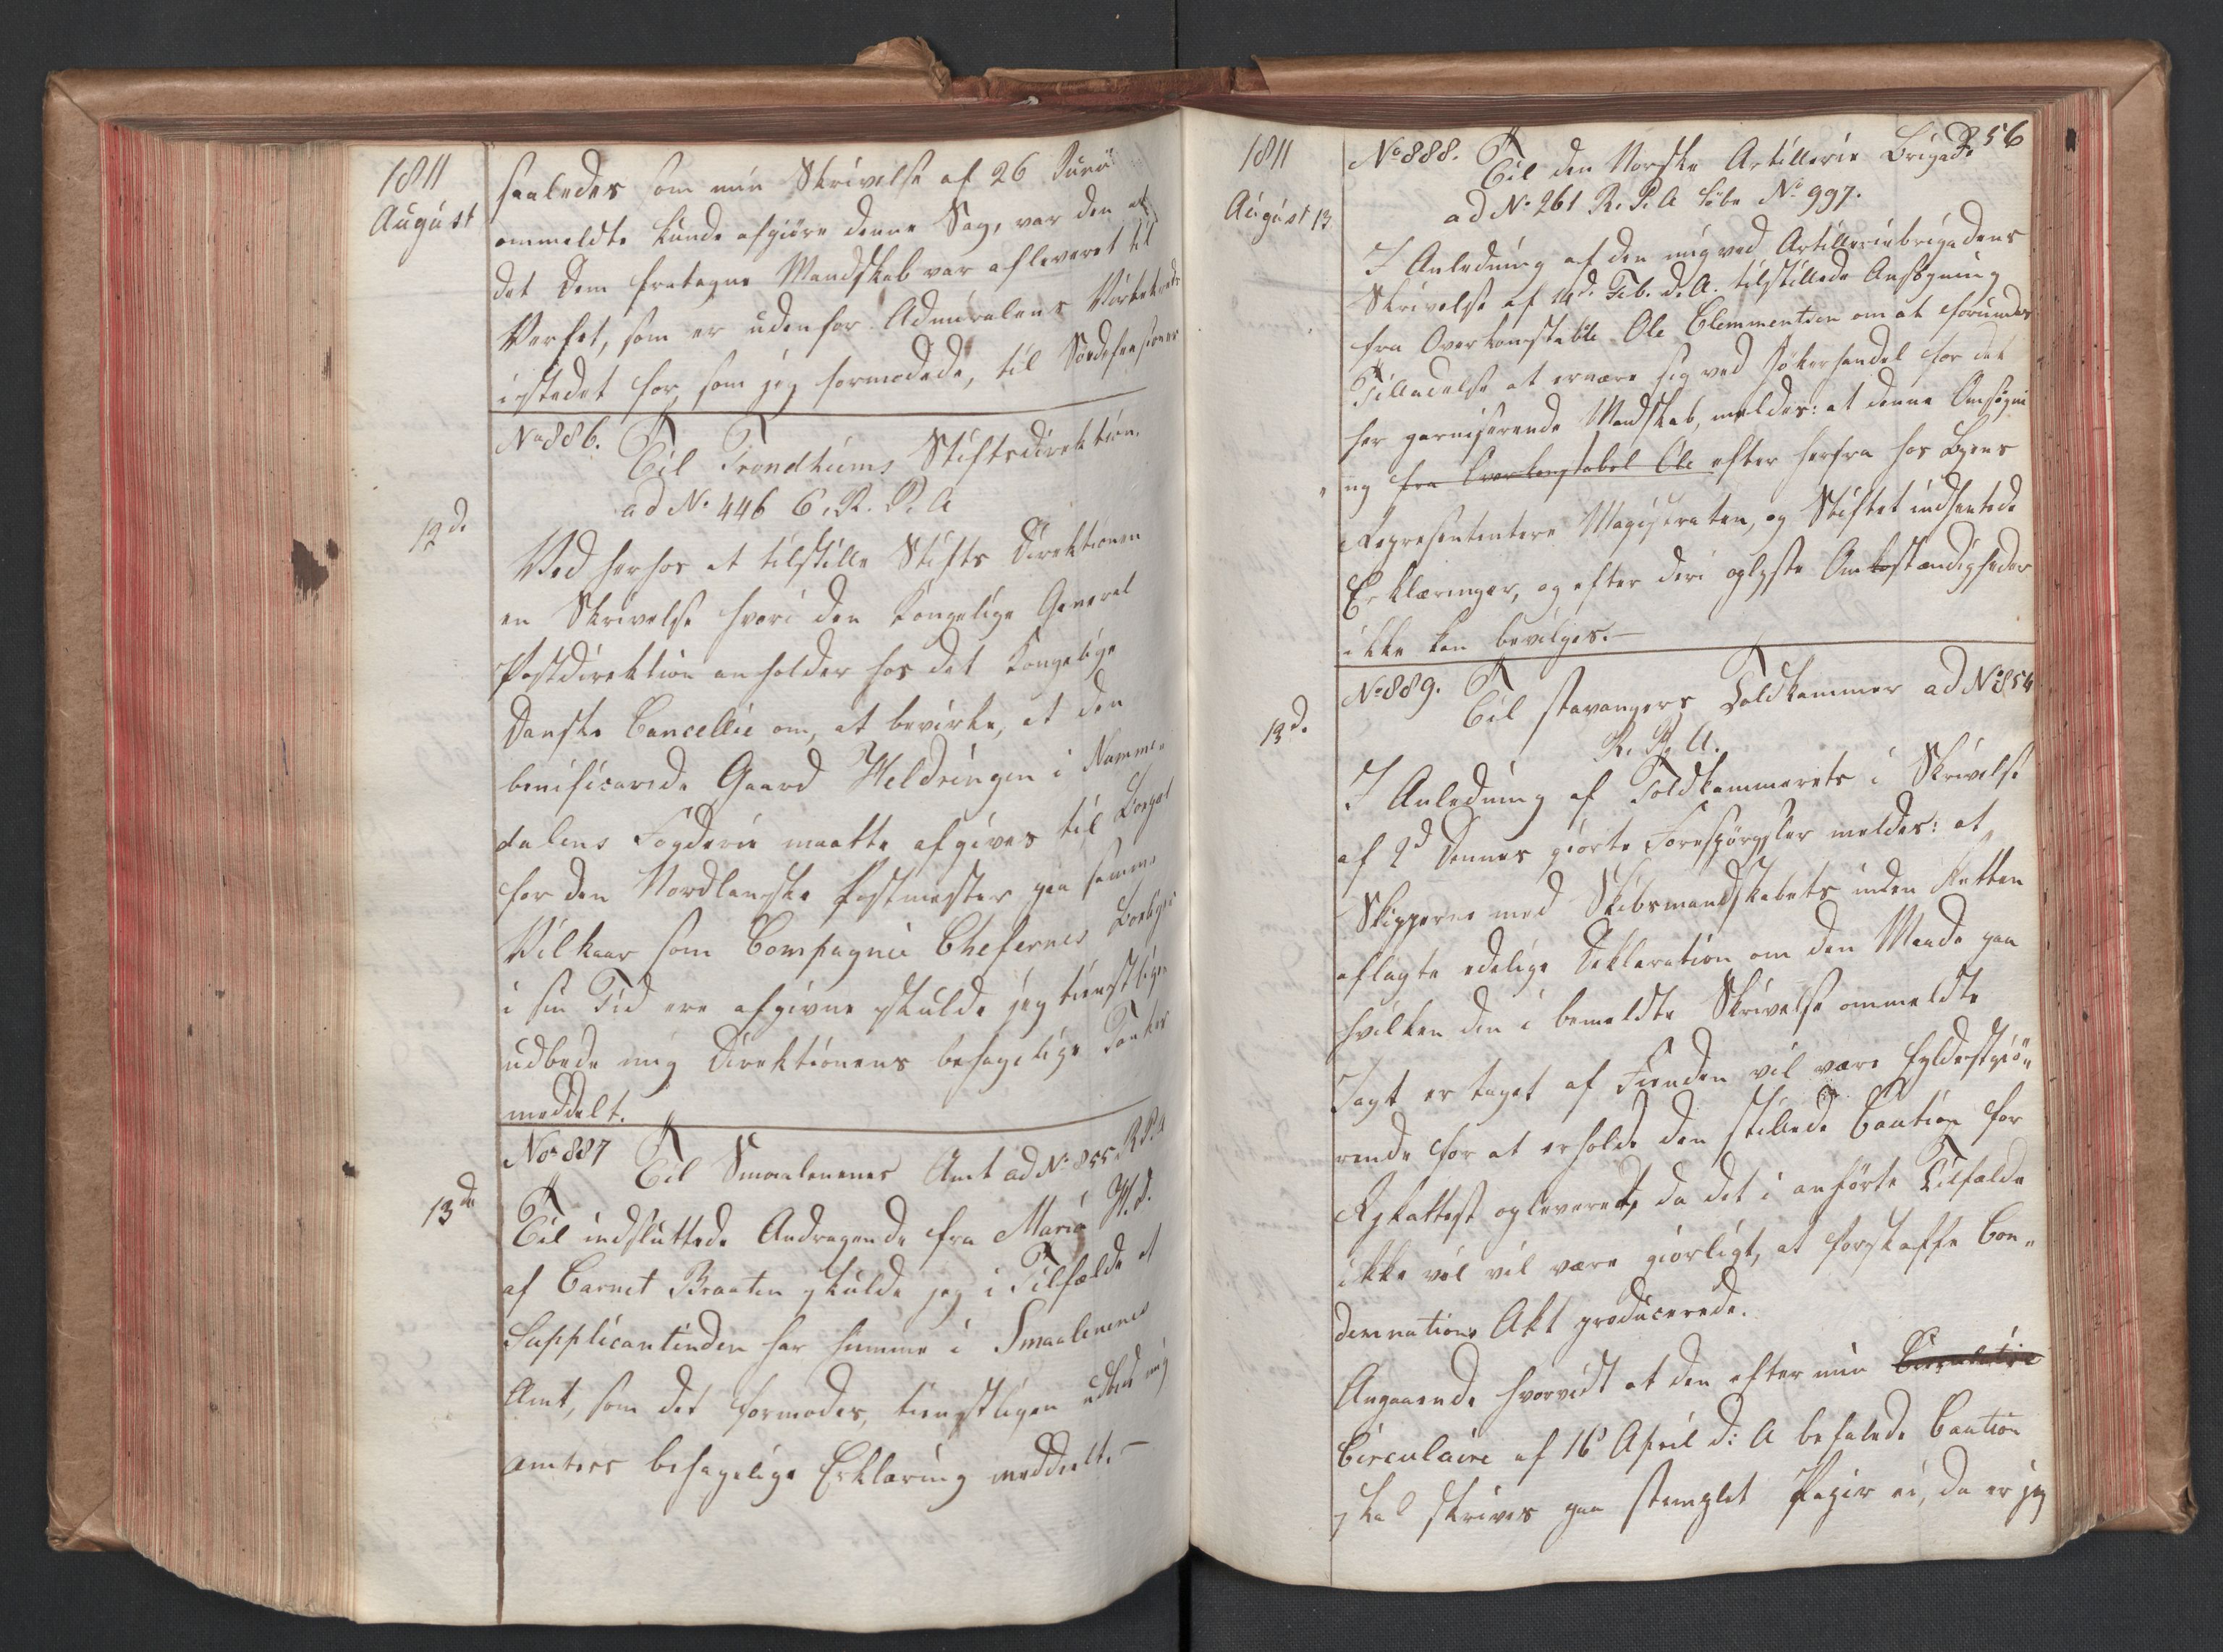 1811
August
saaledes som min Skrivelse af 26 Junii
ommeldte kunde afgiöre denne Sag, var den at
det Dem fratagne Mandskab var afleveret til
Verfet, som er udenfor Admiralens Virkekreds
istedet for, som jeg formodede, til Södefensionen
No 886. Til Trondhiems Stiftsdirektion.
ad No. 446 C. R. P. A
12 d.
Ved herhos at tilstille Stifts Direktionen
en Skrivelse hvori den Kongelige General
Postdirektion anholder hos det Kongelige
Danske Cancellie om, at bevirke, at den
beneficerede Gaard Heldringen i Namme-
dalens Fogderie maatte afgives til Boepæl
for den Nordlanske Postmester paa samme
Vilkaar som Compagnie Chefernes
i sin Tid ere afgivne skulde jeg tienstligen
udbede mig Direktionens behagelige Tanker
meddelt.
No 887 Til Smaalenenes Amt ad No 855 R P A
13 de
Til indsluttede Andragende fra Maria H. D.
af Carnet Braaten skulde jeg i Tilfælde at
Supplicantinden har hiemme i Smaalenenes
Amt, som det formodes, tienstligen udbede mig
Amtets behagelige Erklæring meddeelt. —
256
1811
August 13.
No 888. Til den Norske Artillerie Brigade
ad No. 261 R. P. A löbe No 997.
I Anledning af den mig ved Artilleriebrigadens
Skrivelse af 14 d. Feb. d. A. tilstillede Ansögning
fra Overkonstabile Ole Clemmentsen om at forundes
Tilladelse at ernære sig ved Høkerhandel for det
her garniserende Mandskab, meldes: at denne Ansögni
ng fra Overkonstabel Ole efter herfra hos Byens
Representantere Magistraten, og Stiftet indhentede
Erklæringer, og efter deri oplyste Omstændigheder
ikke kan bevilges. —
No 889. Til Stavangers Toldkammer ad No 854
R. P. A.
13 d.
I Anledning af Toldkammerets i Skrivelse
af 2 d Dennes giorte Forespörgsler meldes: at
Skipperne med Skibsmandskabets inden Retten
aflagte edelige Deklaration om den Maade paa
hvilken den i bemeldte Skrivelse ommeldte
Jagt er taget af Fienden vil være fyldestgiö-
rende for at erholde den stillede Caution for
Rykattest opleveret, da det i anförte Tilfælde
ikke vel vil være giörligt, at forskaffe Con-
demnations Akt producerede.
Angaaende hvorvidt at den efter min Circulaire
Circulaire af 16 April d: A befalede Caution
skal skrives paa stemplet Papir ei, da er jeg